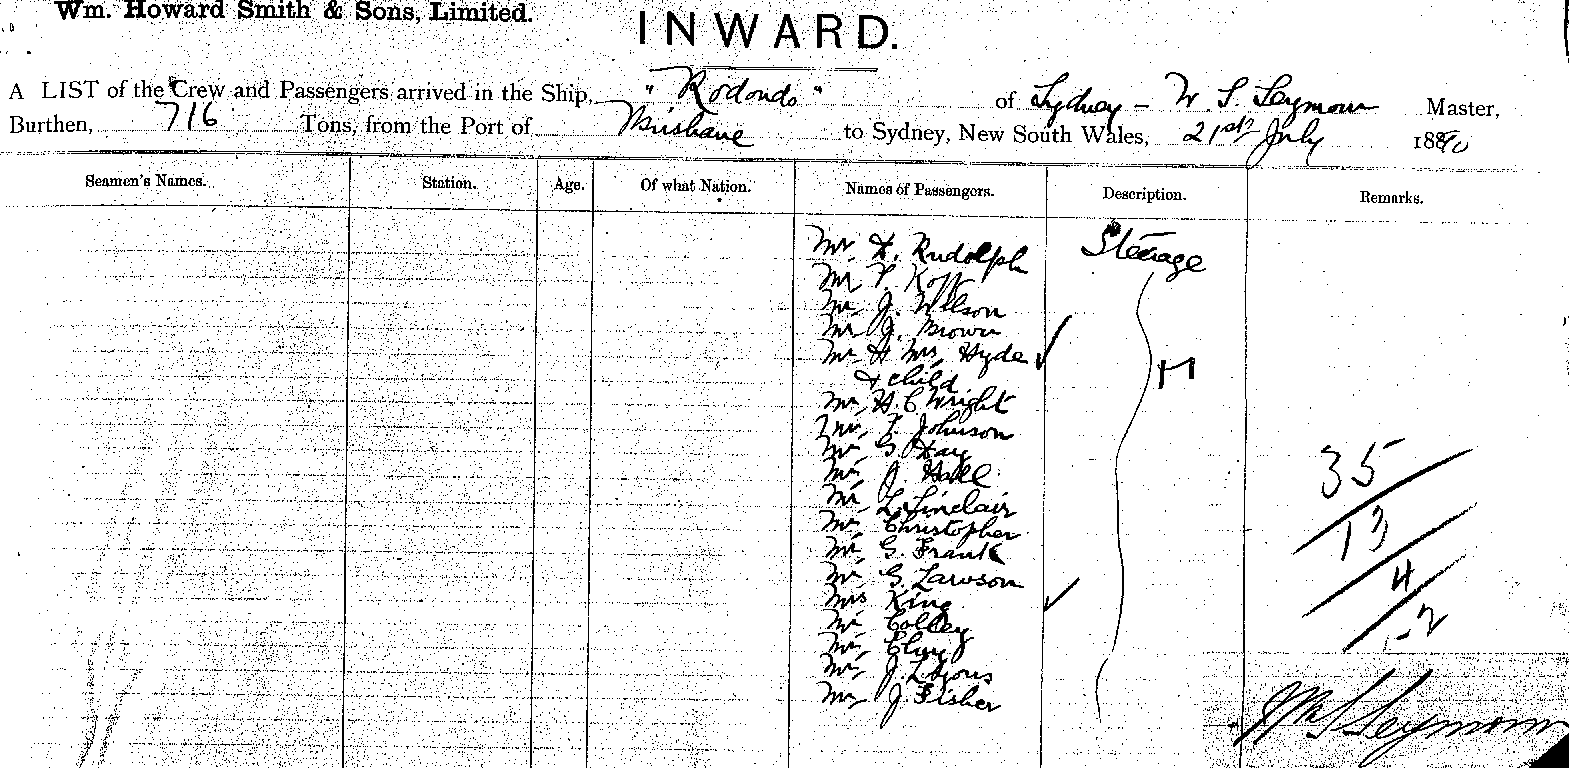 Wm. Howard Smith & Sons, Limited.
INWARD.
A LIST of the Crew and Passengers arrived in the Ship, "Rodondo" of Sydney - W. S. Seymour Master,
Burthen, 716 Tons, from the Port of Brisbane to Sydney, New South Wales, 21st July 1890
Seamen's Names. Station. Age. Of what Nation. Names of Passengers. Description. Remarks.
Mr H. Rudolph Steerage
Mr Kopp
Mr J. Wilson
Mr J. Brown
Mr & Mrs Hyde ✓
& child
Mr H. C Wright
Mr F. Johnson
Mr G. Hay
Mr J. Hall
Mr L. Sinclair
Mr Christopher
Mr G. Frank
Mr G. Lawson
Mrs King ✓
Mr Colley
Mr
Mr J. Lyons
Mr J. Fisher
35
13
4
-2
Wm S Seymour